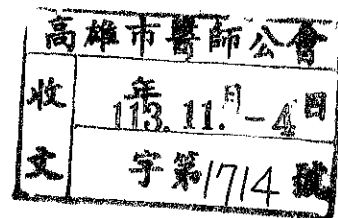 高雄市醫師公會
收文
年月日
113.11.-4
字第1714號